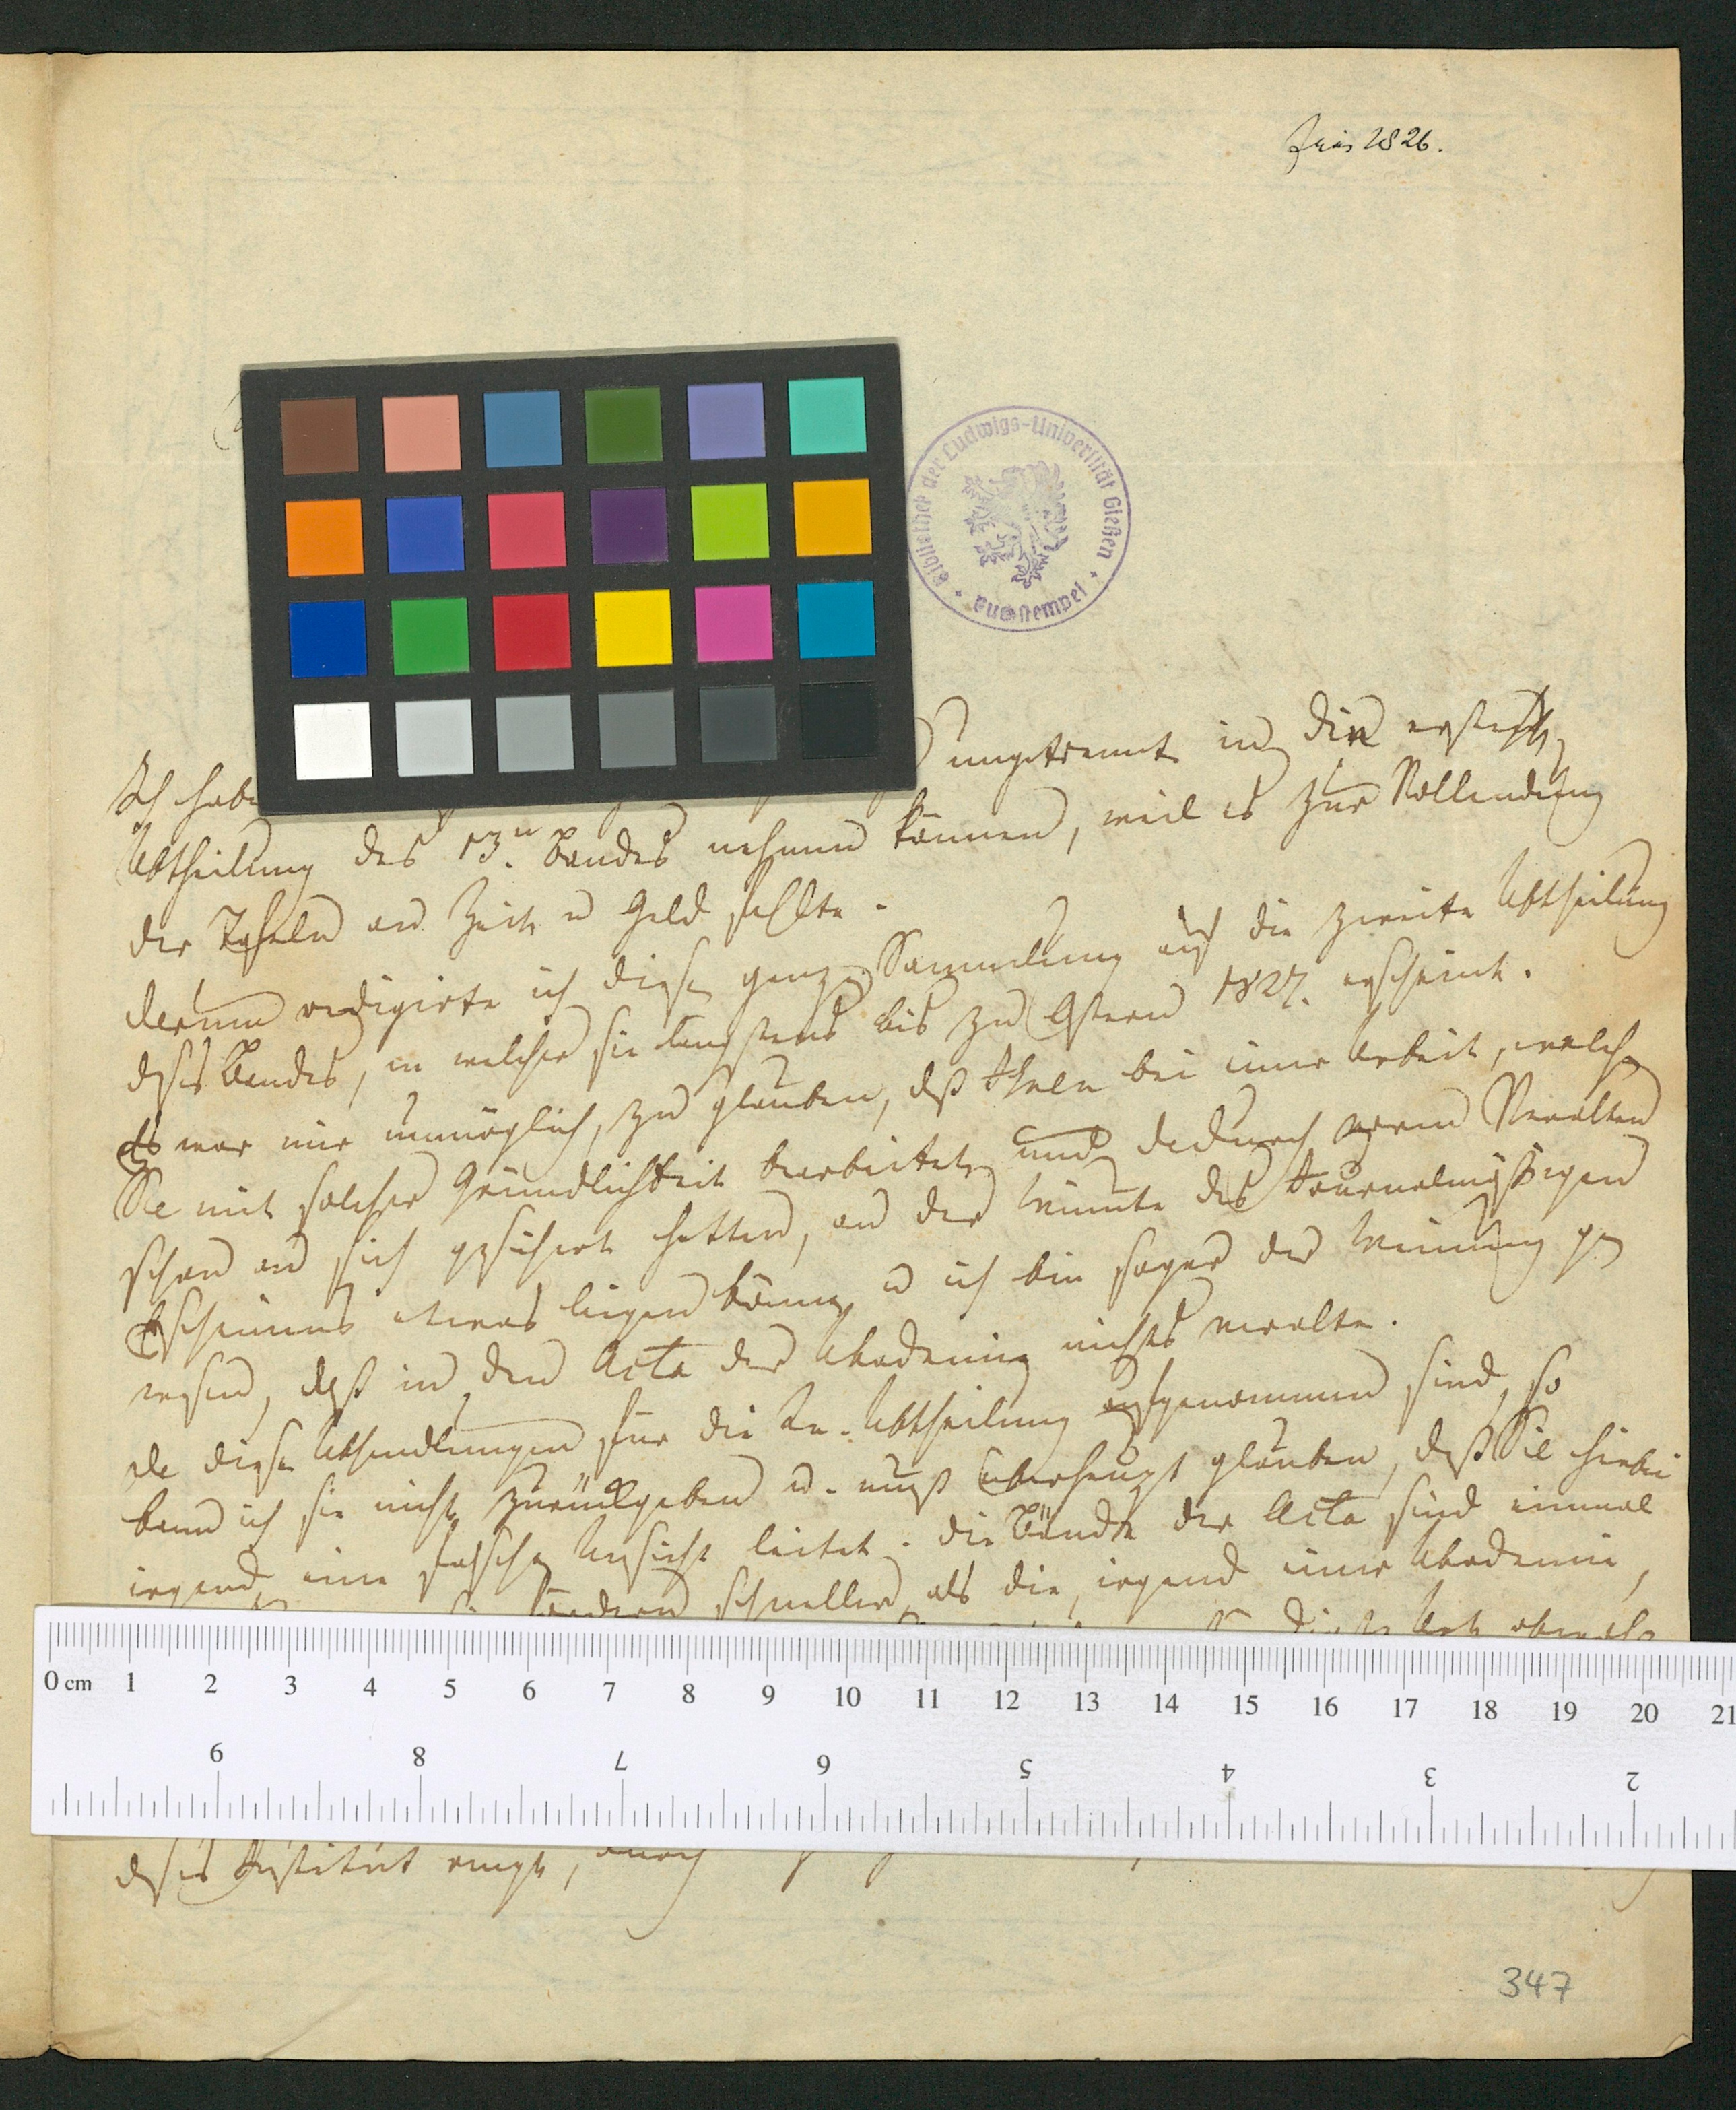 Juin 1826.
Bibliothek der Ludwigs-Universität Gießen
Buchstempel
Ich habe ungetrennt in die erste
Abtheilung des 13n. Bandes nehmen können, weil es zur Vollendung
der Tafeln an Zeit u Geld fehlte.
darum redigirte ich diese ganze Sammlung auf die zweite Abtheilung
dieses Bandes, in welcher sie längstens bis zu Ostern 1827. erscheint.
Es war mir unmöglich, zu glauben, daß Ihnen bei einer Arbeit, welche
Sie mit solcher Gründlichkeit bearbeitet und dadurch vorm Veralten
schon an sich gesichert hatten, an der Minute des Journalmäßigen
Erscheinens etwas liegen könne, u ich bin sogar der Meinung ge
wesen, daß in den Acta der Akademie nichts veralte.
da diese Abhandlungen für die 2e. Abtheilung aufgenommen sind, so
kann ich sie nicht zurückgeben u. muß überhaupt glauben, daß Sie hiebei
irgend eine falsche Ansicht leitet. die Bände der Acta sind einmal
sondern schneller, als die, irgend einer Akademie,
dieses Institut
0 cm 1 2 3 4 5 6 7 8 9 10 11 12 13 14 15 16 17 18 19 20 21
9 8 7 6 5 4 3 2
347